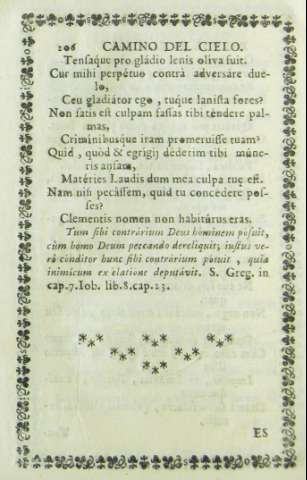 106 CAMINO DEL CIELO.
Tensaque pro gládio lenis oliva fuit.
Cur mihi perpétuo contrà adversáre due-
lo,
Ceu gladiátor ego, tuque lanista fores?
Non satis est culpam fassas tibi téndere pal-
mas,
Criminibusque iram promeruisse tuam?
Quid, quòd & egrigij déderim tibi múne-
ris ansam,
Matéries Laudis dum mea culpa tuę est.
Nam nisi pecássem, quid tu concedere pos-
ses?
Clementis nomen non habitúrus eras.
Tum sibi contrárium Deus hóminem pósuit,
cùm homo Deum peccando dereliquit; iustus ve-
rò cónditor hunc sibi contrárium pósuit, quia
inimicum ex elatione deputávit. S. Greg. in
cap.7.Iob. lib.8.cap.23.
ES